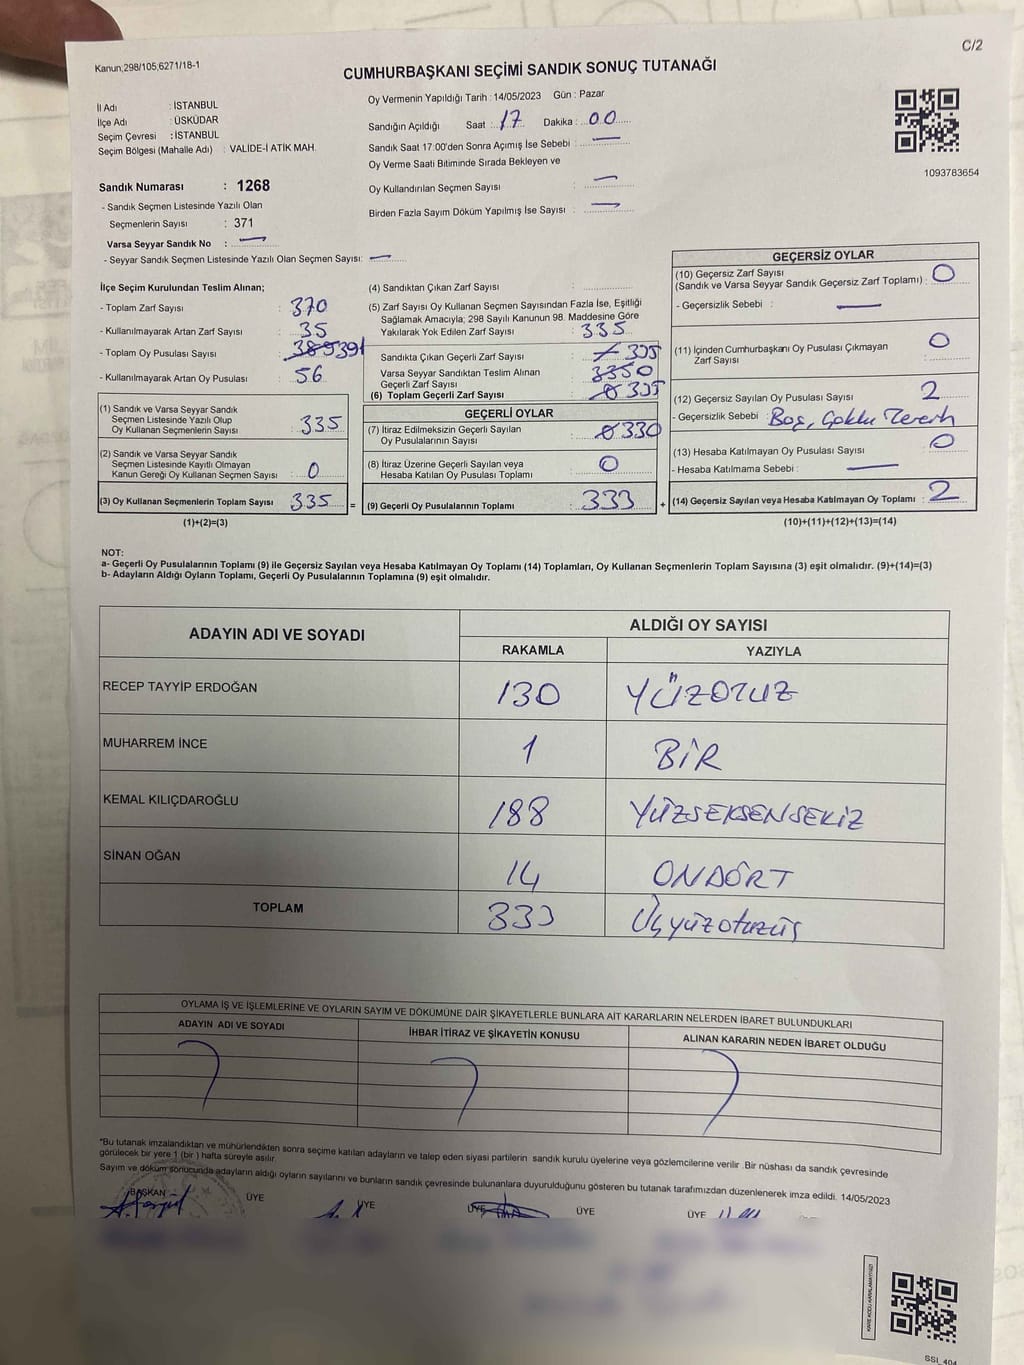 C/2
Kanun;298/105;6271/18-1
CUMHURBAŞKANI SEÇİMİ SANDIK SONUÇ TUTANAĞI
İl Adı : İSTANBUL
İlçe Adı : ÜSKÜDAR
Seçim Çevresi : İSTANBUL
Seçim Bölgesi (Mahalle Adı) : VALİDE-İ ATİK MAH.
Oy Vermenin Yapıldığı Tarih : 14/05/2023 Gün : Pazar
Sandığın Açıldığı Saat : 17 Dakika : 00
Sandık Saat 17:00'den Sonra Açımış İse Sebebi : —
Oy Verme Saati Bitiminde Sırada Bekleyen ve
Oy Kullandırılan Seçmen Sayısı : —
Birden Fazla Sayım Döküm Yapılmış İse Sayısı : —
1093783654
Sandık Numarası : 1268
- Sandık Seçmen Listesinde Yazılı Olan
Seçmenlerin Sayısı : 371
Varsa Seyyar Sandık No : —
- Seyyar Sandık Seçmen Listesinde Yazılı Olan Seçmen Sayısı: —
İlçe Seçim Kurulundan Teslim Alınan;
- Toplam Zarf Sayısı : 370
- Kullanılmayarak Artan Zarf Sayısı : 35
- Toplam Oy Pusulası Sayısı : 391
- Kullanılmayarak Artan Oy Pusulası : 56
(1) Sandık ve Varsa Seyyar Sandık
Seçmen Listesinde Yazılı Olup
Oy Kullanan Seçmenlerin Sayısı : 335
(2) Sandık ve Varsa Seyyar Sandık
Seçmen Listesinde Kayıtlı Olmayan
Kanun Gereği Oy Kullanan Seçmen Sayısı : 0
(3) Oy Kullanan Seçmenlerin Toplam Sayısı : 335 =
(1)+(2)=(3)
(4) Sandıktan Çıkan Zarf Sayısı :
(5) Zarf Sayısı Oy Kullanan Seçmen Sayısından Fazla İse, Eşitliği
Sağlamak Amacıyla; 298 Sayılı Kanunun 98. Maddesine Göre
Yakılarak Yok Edilen Zarf Sayısı : 335
Sandıkta Çıkan Geçerli Zarf Sayısı : 335
Varsa Seyyar Sandıktan Teslim Alınan
Geçerli Zarf Sayısı : 0
(6) Toplam Geçerli Zarf Sayısı : 335
GEÇERLİ OYLAR
(7) İtiraz Edilmeksizin Geçerli Sayılan
Oy Pusulalarının Sayısı : 330
(8) İtiraz Üzerine Geçerli Sayılan veya
Hesaba Katılan Oy Pusulası Toplamı : 0
(9) Geçerli Oy Pusulalarının Toplamı : 333 +
GEÇERSİZ OYLAR
(10) Geçersiz Zarf Sayısı
(Sandık ve Varsa Seyyar Sandık Geçersiz Zarf Toplamı) : 0
- Geçersizlik Sebebi : —
(11) İçinden Cumhurbaşkanı Oy Pusulası Çıkmayan
Zarf Sayısı : 0
(12) Geçersiz Sayılan Oy Pusulası Sayısı : 2
- Geçersizlik Sebebi : Boş, Çoklu Tercih
(13) Hesaba Katılmayan Oy Pusulası Sayısı : 0
- Hesaba Katılmama Sebebi : —
(14) Geçersiz Sayılan veya Hesaba Katılmayan Oy Toplamı : 2
(10)+(11)+(12)+(13)=(14)
NOT:
a- Geçerli Oy Pusulalarının Toplamı (9) ile Geçersiz Sayılan veya Hesaba Katılmayan Oy Toplamı (14) Toplamları, Oy Kullanan Seçmenlerin Toplam Sayısına (3) eşit olmalıdır. (9)+(14)=(3)
b- Adayların Aldığı Oyların Toplamı, Geçerli Oy Pusulalarının Toplamına (9) eşit olmalıdır.
ADAYIN ADI VE SOYADI ALDIĞI OY SAYISI
RAKAMLA YAZIYLA
RECEP TAYYİP ERDOĞAN 130 YÜZOTUZ
MUHARREM İNCE 1 BİR
KEMAL KILIÇDAROĞLU 188 YÜZSEKSENSEKİZ
SİNAN OĞAN 14 ONDÖRT
TOPLAM 333 Üçyüzotuzüç
OYLAMA İŞ VE İŞLEMLERİNE VE OYLARIN SAYIM VE DÖKÜMÜNE DAİR ŞİKAYETLERLE BUNLARA AİT KARARLARIN NELERDEN İBARET BULUNDUKLARI
ADAYIN ADI VE SOYADI İHBAR İTİRAZ VE ŞİKAYETİN KONUSU ALINAN KARARIN NEDEN İBARET OLDUĞU
*Bu tutanak imzalandıktan ve mühürlendikten sonra seçime katılan adayların ve talep eden siyasi partilerin sandık kurulu üyelerine veya gözlemcilerine verilir .Bir nüshası da sandık çevresinde
görülecek bir yere 1 (bir ) hafta süreyle asılır.
Sayım ve döküm sonucunda adayların aldığı oyların sayılarını ve bunların sandık çevresinde bulunanlara duyurulduğunu gösteren bu tutanak tarafımızdan düzenlenerek imza edildi. 14/05/2023
BAŞKAN ÜYE ÜYE ÜYE ÜYE ÜYE